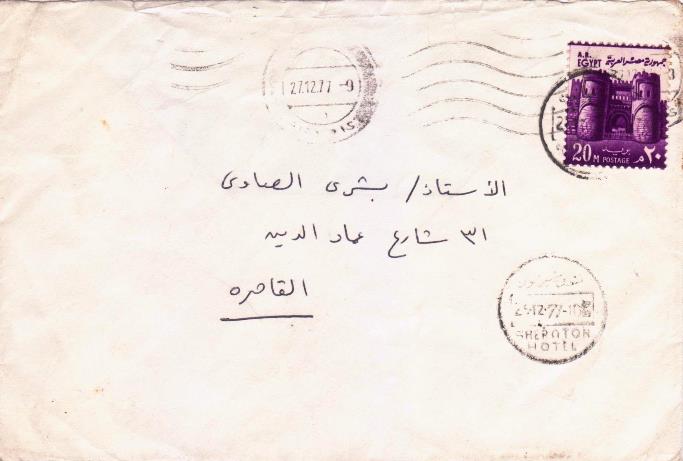 27.12.77 -9
A.R. EGYPT جمهورية مصر العربية
بريد
20 M POSTAGE ٢٠ م
الأستاذ/ بشرى الصاوى
٣١ شارع عماد الدين
القاهره
12.77-10
SHERATON
HOTEL